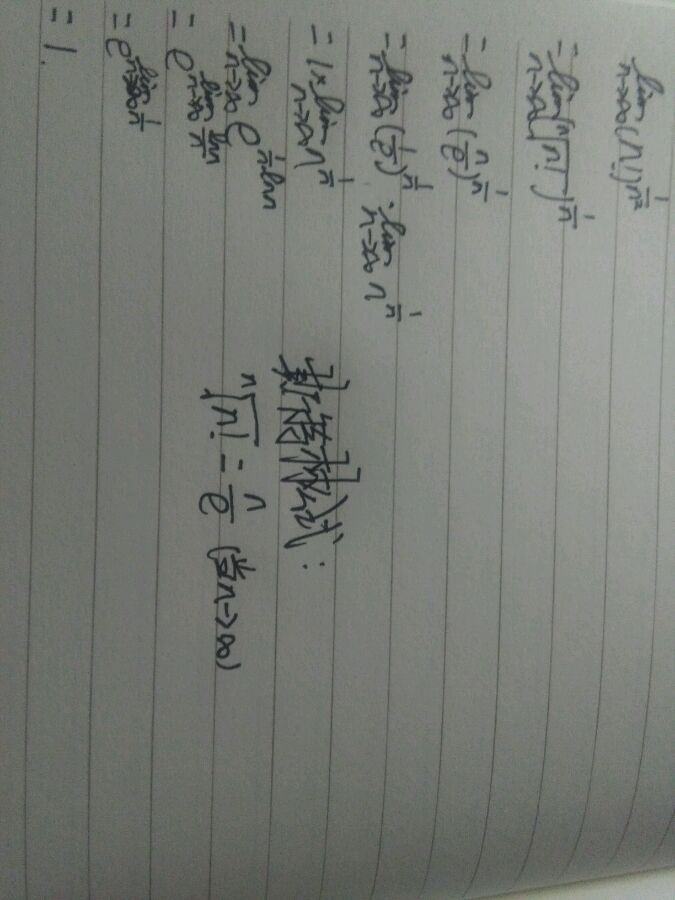 lim n→∞ (n!)^(1/n²)
= lim n→∞ (ⁿ√n!)^(1/n)
= lim n→∞ (n/e)^(1/n)
= lim n→∞ (1/e)^(1/n) · lim n→∞ n^(1/n)
= 1× lim n→∞ n^(1/n)
= lim n→∞ e^(1/n ln n)
= e^(lim n→∞ ln n/n)
= e^(lim n→∞ 1/n)
= 1.
斯特林公式:
ⁿ√n! = n/e (当n→∞)